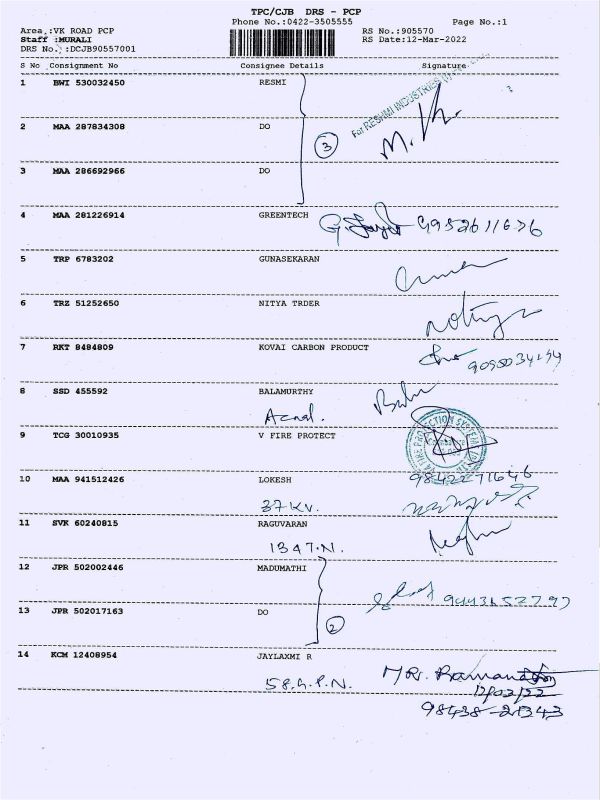 TPC/CJB DRS - PCP
Phone No.:0422-3505555 Page No.:1
Area :VK ROAD PCP RS No.:905570
Staff :MURALI RS Date:12-Mar-2022
DRS No.:DCJB90557001
S No Consignment No Consignee Details Signature
1 BWI 530032450 RESMI
For RESHMI INDUSTRIES
2 MAA 287834308 DO
3
3 MAA 286692966 DO
4 MAA 281226914 GREENTECH
5 TRP 6783202 GUNASEKARAN
6 TRZ 51252650 NITYA TRDER
7 RKT 8484809 KOVAI CARBON PRODUCT
8 SSD 455592 BALAMURTHY
9 TCG 30010935 V FIRE PROTECT
10 MAA 941512426 LOKESH 9842271646
37 KV.
11 SVK 60240815 RAGUVARAN
1347.N.
12 JPR 502002446 MADUMATHI
13 JPR 502017163 DO
2
14 KCM 12408954 JAYLAXMI R
58.G.P.N.
12/03/22
98438-21343